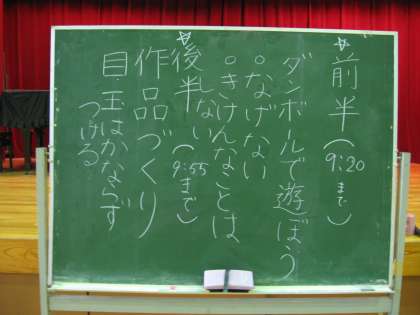 ☆前半(9:20まで)
ダンボールで遊ぼう
。なげない
。きけんなことは
しない
☆後半(9:55まで)
作品づくり
目玉はかならず
つける